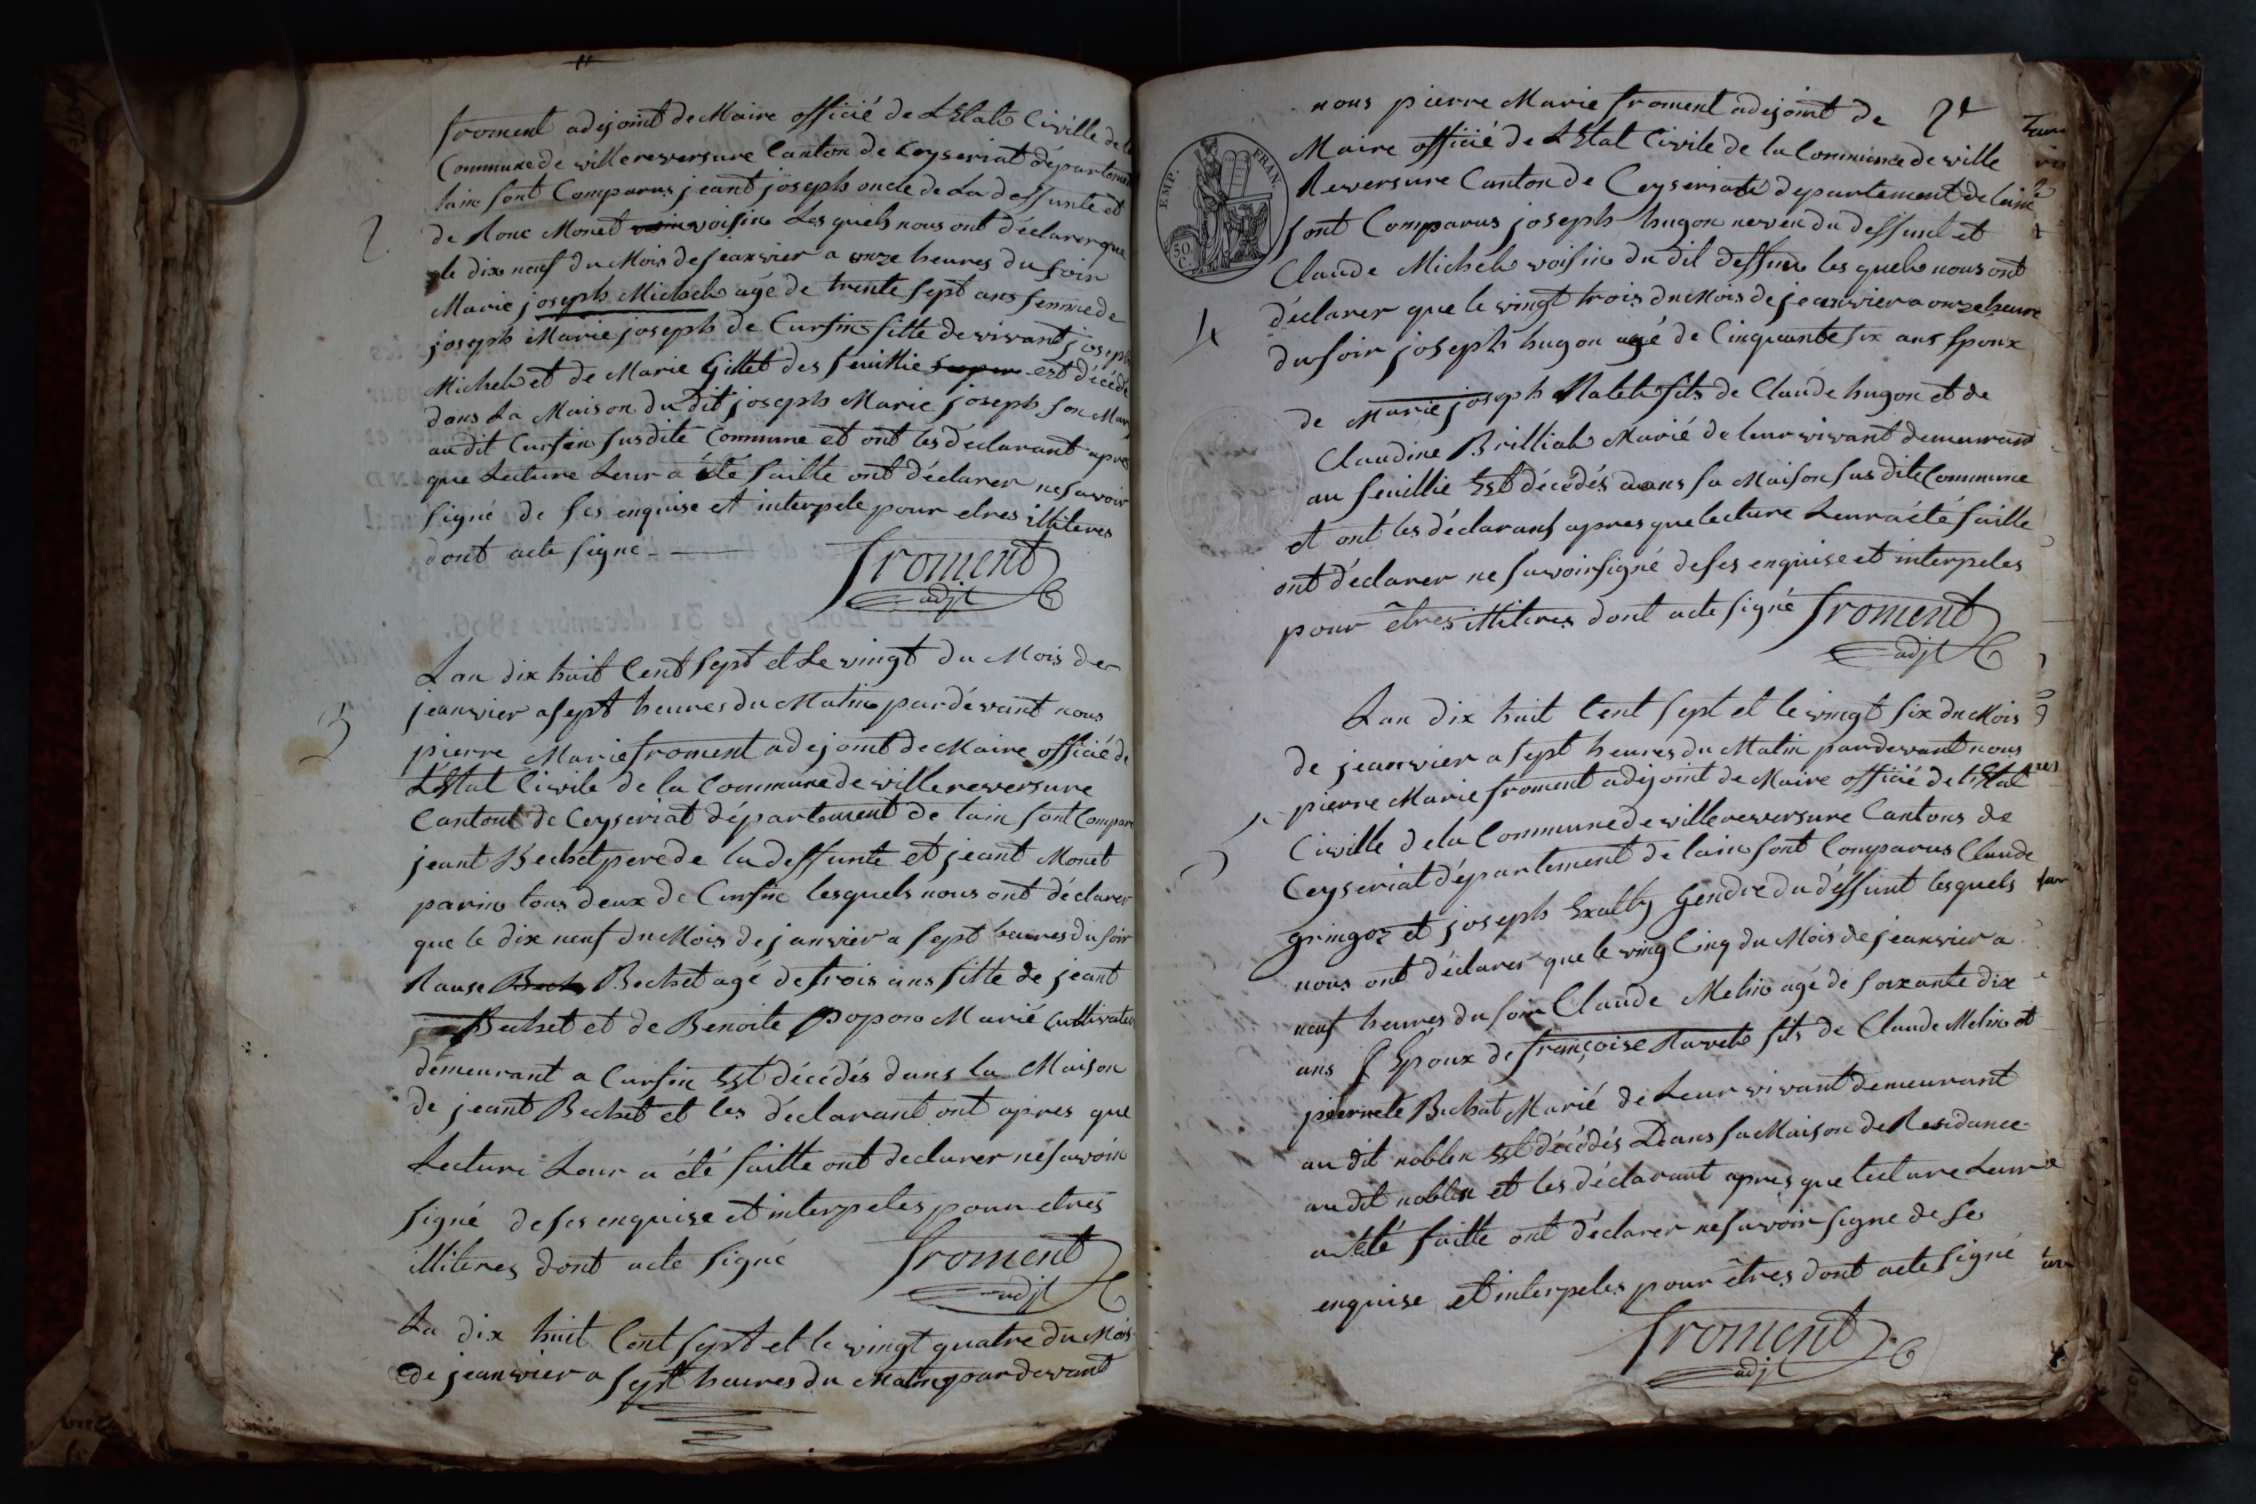 froment adejoint de Maire officié de L'Etat Civille de la
Commune de villereversure Canton de Ceyseriat département
lain sont Comparus jeant joseph oncle de La deffunte et
2
de Monet voisin Lesquels nous ont déclarer que
le dix neuf du Mois de jeanvier a onze heures du soir
Marie joseph Michel agé de trente sept ans femme de
joseph Marie joseph de Cursin fille de vivant joseph
Michel et de Marie Gillet des feuillie est décédé
dans La Maison du dit joseph Marie joseph son Mary
au dit Cursin susdite Commune et ont les déclarant apres
que Lecture Leur a été faitte ont déclarer ne savoir
signé de ses enquise et interpele pour etres illiteres
dont acte signé
froment
adjt
Lan dix huit Cent sept et Le vingt du Mois de
jeanvier a sept heures du Matin pardévant nous
3
pierre Marie froment adejoint de Maire officié de
L'Etat Civile de la Commune de villereversure
Cantont de Ceyseriat département de lain sont Compar
jeant Bechet pere de la deffunte et jeant Monet
parin tous deux de Cursin lesquels nous ont déclarer
que le dix neuf du Mois de janvier a sept heures du soir
Rause Bechet agé de trois ans fille de jeant
Bechet et de Benoite popon Marié Cultivateur
demeurant a Cursin Est décédés dans la Maison
de jeant Bechet et les déclarant ont apres que
Lecture Leur a été faitte ont declarer ne savoir
signé de ses enquise et interpeles pour etres
illiteres dont acte signé
froment
adjt
La dix huit Cent sept et le vingt quatre du Mois
de jeanvier a sept heures du Matin pardevant
nous pierre Marie froment adejoint de
EMP. FRAN.
50 C.
Maire officié de L'Etat Civile de la Commune de ville
Reversure Canton de Ceyseriat departement de lain
sont Comparus joseph hugon neveu du deffunt et
Claude Michel voisin du dit deffun les quels nous ont
4
déclarer que le vingt trois du Mois de jeanvier a onze heure
du soir joseph hugon agé de Cinquante six ans Epoux
de Marie joseph fils de Claude hugon et de
Claudine Brilliat Marié de leur vivant demeurant
au feuillie Est décédés dans sa Maison sus dite Commune
et ont les déclarant apres que lecture Leur a été faitte
ont déclarer ne savoir signé de ses enquise et interpeles
pour êtres illiteres dont acte signé
froment
adjt
Lan dix huit Cent sept et le vingt six du Mois
de jeanvier a sept heures du Matin pardevant nous
pierre Marie froment adejoint de Maire officié de l'Etat
5
Civille de la Commune de villereversure Cantons de
Ceyseriat département de lain sont Comparus Claude
gringoz et joseph Exalty Gendre du déffunt lesquels
nous ont déclarer que le ving Cinq du Mois de jeanvier a
neuf heures du soir Claude Melin agé de soixante dix
ans Epoux de françoise Ravet fils de Claude Melin et
piernete Bechat Marié de Leur vivant demeurant
au dit noblen Est décédés Dans sa Maison de Residance
au dit noblen et les déclarant apres que lecture Leur
a été faitte ont déclarer ne savoir signe de se
enquise et interpeles pour êtres dont acte signé
froment
adjt